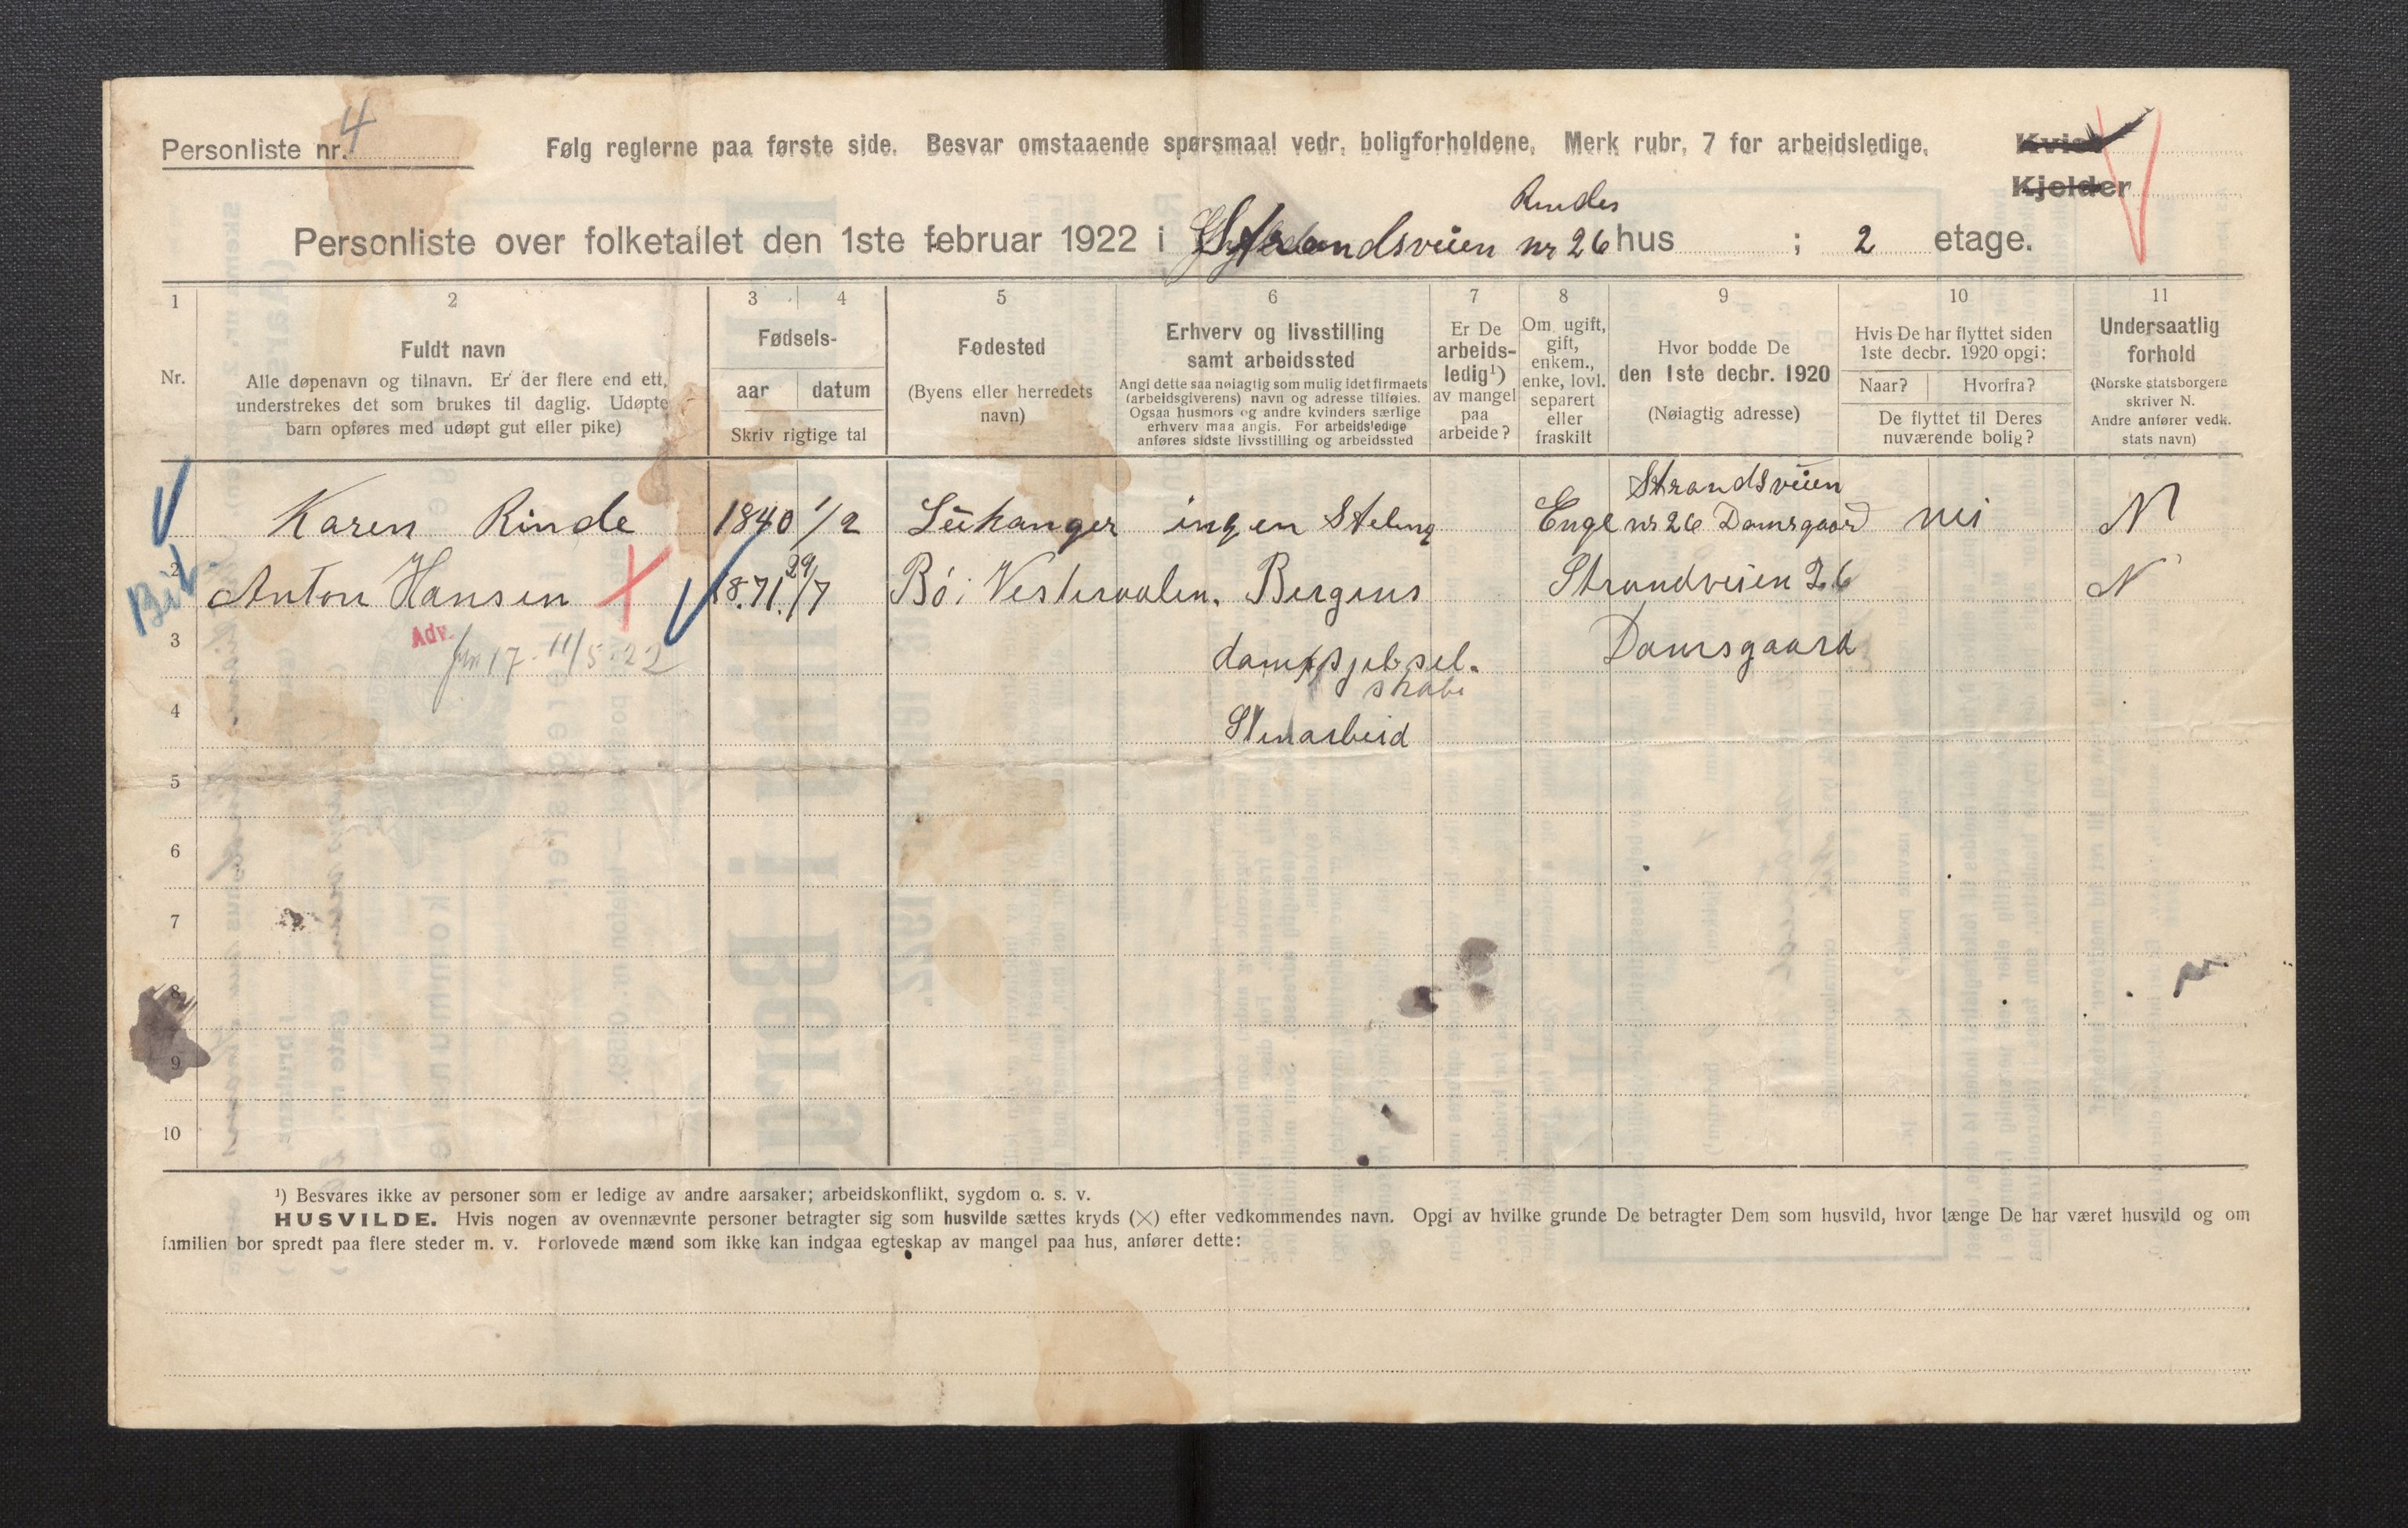 Personliste nr. 4
Følg reglerne paa første side. Besvar omstaaende spørsmaal vedr. boligforholdene. Merk rubr. 7 for arbeidsledige.
Kvist
Kjelder
Rindes
Personliste over folketallet den 1ste februar 1922 i Strandsveien nr 26 hus ; 2 etage.
1 2 3 4 5 6 7 8 9 10 11
Nr.
Fuldt navn
Alle døpenavn og tilnavn. Er der flere end ett,
understrekes det som brukes til daglig. Udøpte
barn opføres med udøpt gut eller pike)
Fødsels-
aar datum
Skriv rigtige tal
Fødested
(Byens eller herredets
navn)
Erhverv og livsstilling
samt arbeidssted
Angi dette saa nøiagtig som mulig idet firmaets
(arbeidsgiverens) navn og adresse tilføies.
Ogsaa husmors og andre kvinders særlige
erhverv maa angis. For arbeidsledige
anføres sidste livsstilling og arbeidssted
Er De
arbeids-
ledig¹)
av mangel
paa
arbeide?
Om ugift,
gift,
enkem.,
enke, lovl.
separert
eller
fraskilt
Hvor bodde De
den 1ste decbr. 1920
(Nøiagtig adresse)
Hvis De har flyttet siden
1ste decbr. 1920 opgi:
Naar? Hvorfra?
De flyttet til Deres
nuværende bolig?
Undersaatlig
forhold
(Norske statsborgere
skriver N.
Andre anfører vedk.
stats navn)
Strandsveien
Karen Rinde 1840 1/2 Leikanger ingen Steling Enge nr 26 Damsgaard nei N
2 Anton Hansen 1871. 29/7 Bö i Vesteraalen. Bergens Strandveien 26 N
Bil.
3 Adv. 17 - 11/5. 22 dampsjibsel. Damsgaard
skabe
4 Stenarbeid
5
6
7
8
9
10
¹) Besvares ikke av personer som er ledige av andre aarsaker; arbeidskonflikt, sygdom o. s. v.
HUSVILDE. Hvis nogen av ovennævnte personer betragter sig som husvilde sættes kryds (×) efter vedkommendes navn. Opgi av hvilke grunde De betragter Dem som husvild, hvor længe De har været husvild og om
familien bor spredt paa flere steder m. v. Forlovede mænd som ikke kan indgaa egteskap av mangel paa hus, anfører dette: